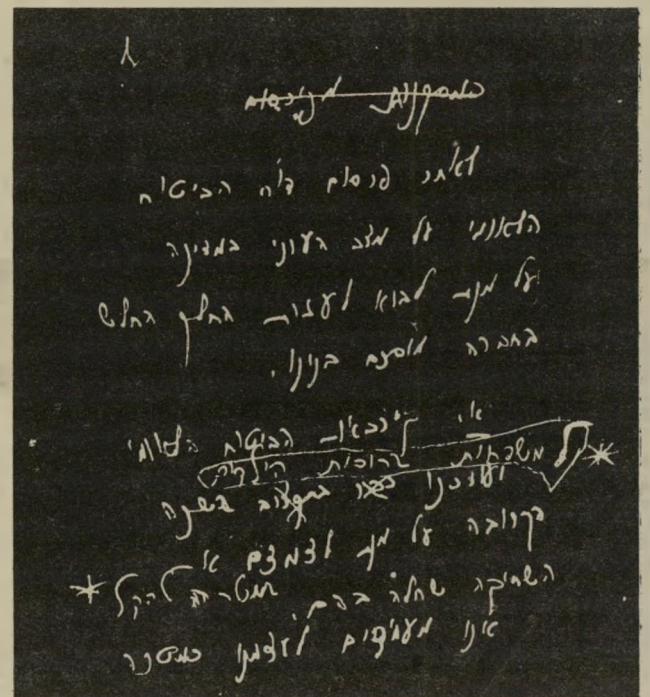 לאחר פרסום דו"ח הביטוח
הלאומי על מצב העוני במדינה
על מנת לבוא לעזרת החלק החלש
בחברה מוסכם בנינו.
הביטוח הלאומי
משפחות ברוכות הילדים
יעודכנו השנה
הקרובה על מנת לצמצם א
השחיקה שחלה בהם. במטרה להקל
אנו מעמידים לעצמנו כמטרה